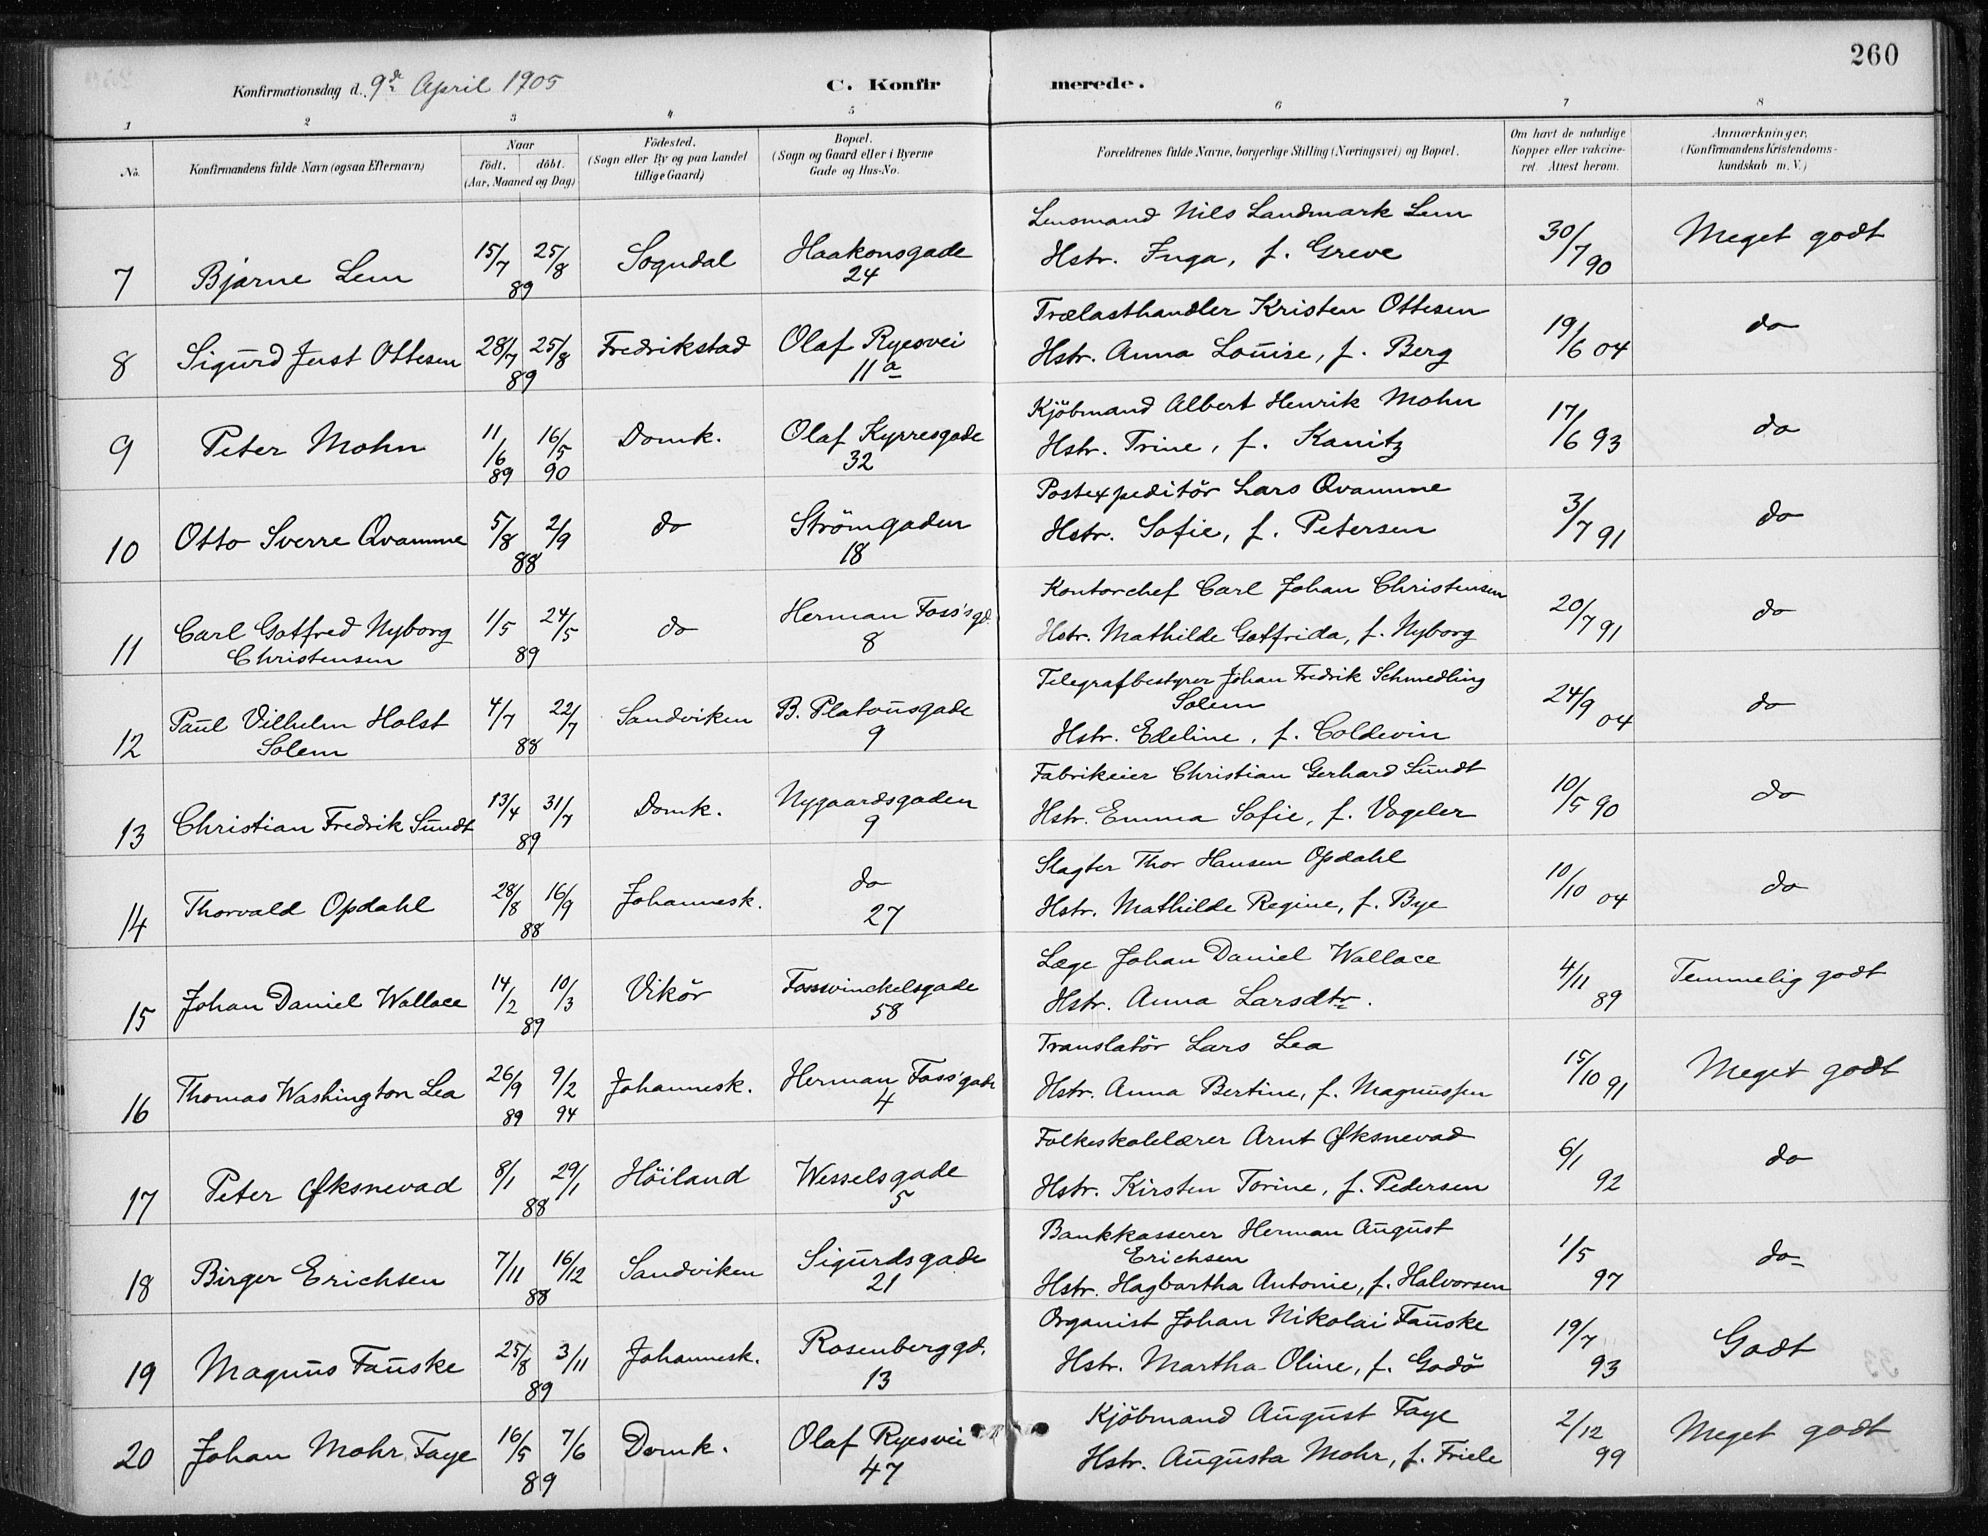 260
Konfirmationsdag d. 9de April 1905
C. Konfirmerede.
1 2 3 4 5 6 7 8
No.
Konfirmandens fulde Navn (ogsaa Efternavn)
Naar
födt. döbt.
(Aar, Maaned og Dag)
Födested.
(Sogn eller By og paa Landet
tillige Gaard)
Bopæl.
(Sogn og Gaard eller i Byerne
Gade og Hus-No.
Forældrenes fulde Navne, borgerlige Stilling (Næringsvei) og Bopæl.
Om havt de naturlige
Kopper eller vakcine-
ret. Attest herom.
Anmærkninger,
(Konfirmandens Kristendoms-
kundskab m. V.)
7 Bjarne Lem 15/7 25/8 89 Sogndal Haakonsgade 24
Lensmand Nils Landmark Lem
Hstr. Inga, f. Greve
30/7 90 Meget godt
8 Sigurd Just Ottesen 28/7 25/8 89 Fredrikstad Olaf Ryesvei 11 a
Trælasthandler Kristen Ottesen
Hstr. Anna Louise, f. Berg
19/6 04 do
9 Peter Mohn 11/6 89 16/5 90 Domk. Olaf Kyrresgade 32
Kjöbmand Albert Henrik Mohn
Hstr. Trine, f. Kanitz
17/6 93 do
10 Otto Sverre Qvamme 5/8 2/9 88 do Strömgaden 18
Postexpeditör Lars Qvamme
Hstr. Sofie, f. Petersen
3/7 91 do
11 Carl Gotfred Nyborg
Christensen 1/5 24/5 89 do Herman Foss'sgd. 8
Kontorchef Carl Johan Christensen
Hstr. Mathilde Gotfrida, f. Nyborg
20/7 91 do
12 Paul Vilhelm Holst
Solem 4/7 22/7 88 Sandviken B. Platousgade 9
Telegrafbestyrer Johan Fredrik Schmedling
Solem
Hstr. Edeline, f. Coldevin
24/9 04 do
13 Christian Fredrik Sundt 13/4 31/7 89 Domk. Nygaardsgaden 9
Fabrikeier Christian Gerhard Sundt
Hstr. Emma Sofie, f. Vogeler
10/5 90 do
14 Thorvald Opdahl 28/8 16/9 88 Johannesk. do 27
Slagter Thor Hansen Opdahl
Hstr. Mathilde Regine, f. Bye
10/10 04 do
15 Johan Daniel Wallace 14/2 10/3 89 Vikör Fosswinckelsgade 58
Læge Johan Daniel Wallace
Hstr. Anna Larsdtr.
4/11 89 Temmelig godt
16 Thomas Washington Lea 26/9 89 9/2 94 Johannesk. Herman Foss'gade 4
Translatör Lars Lea
Hstr. Anna Bertine, f. Magnussen
15/10 91 Meget godt
17 Peter Øksnevad 8/1 29/1 88 Höiland Wesselsgade 5
Folkeskolelærer Arnt Øksnevad
Hstr. Kirsten Torine, f. Pedersen
6/1 92 do
18 Birger Erichsen 7/11 16/12 88 Sandviken Sigurdsgade 21
Bankkasserer Herman August
Erichsen
Hstr. Hagbartha Antonie, f. Halvorsen
1/5 97 do
19 Magnus Fauske 25/8 3/11 89 Johannesk. Rosenberggd. 13
Organist Johan Nikolai Fauske
Hstr. Martha Oline, f. Godö
19/7 93 Godt
20 Johan Mohr Faye 16/5 7/6 89 Domk. Olaf Ryesvei 47
Kjöbmand August Faye
Hstr. Augusta Mohr, f. Friele
2/12 99 Meget godt